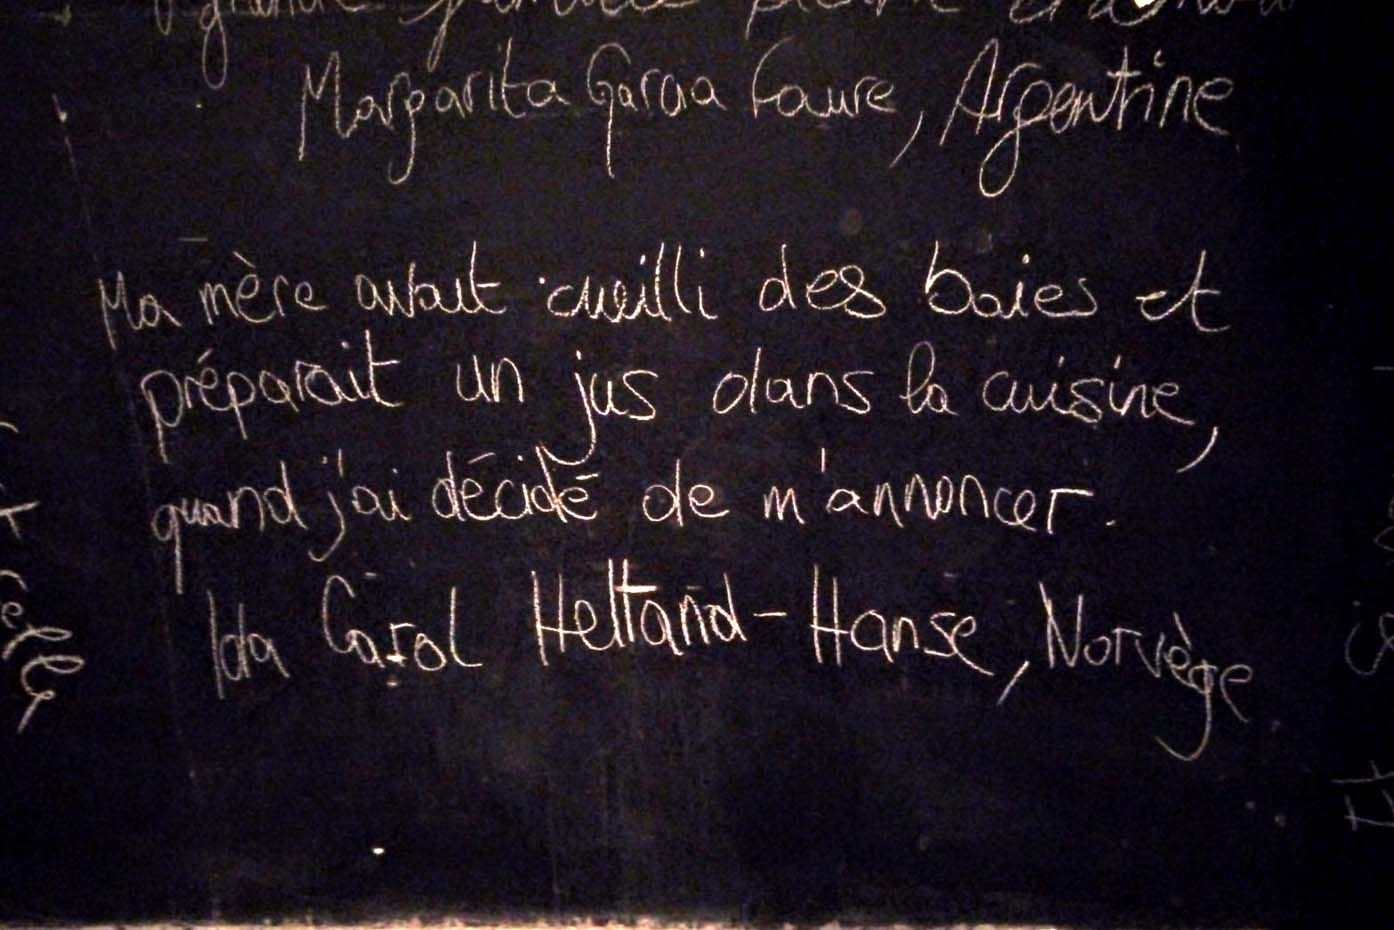 grande
Margarita Garcia Faure, Argentine
Ma mère avait cueilli des baies et
préparait un jus dans la cuisine,
quand j'ai décidé de m'annoncer.
Ida Carol Heltand-Hanse, Norvège